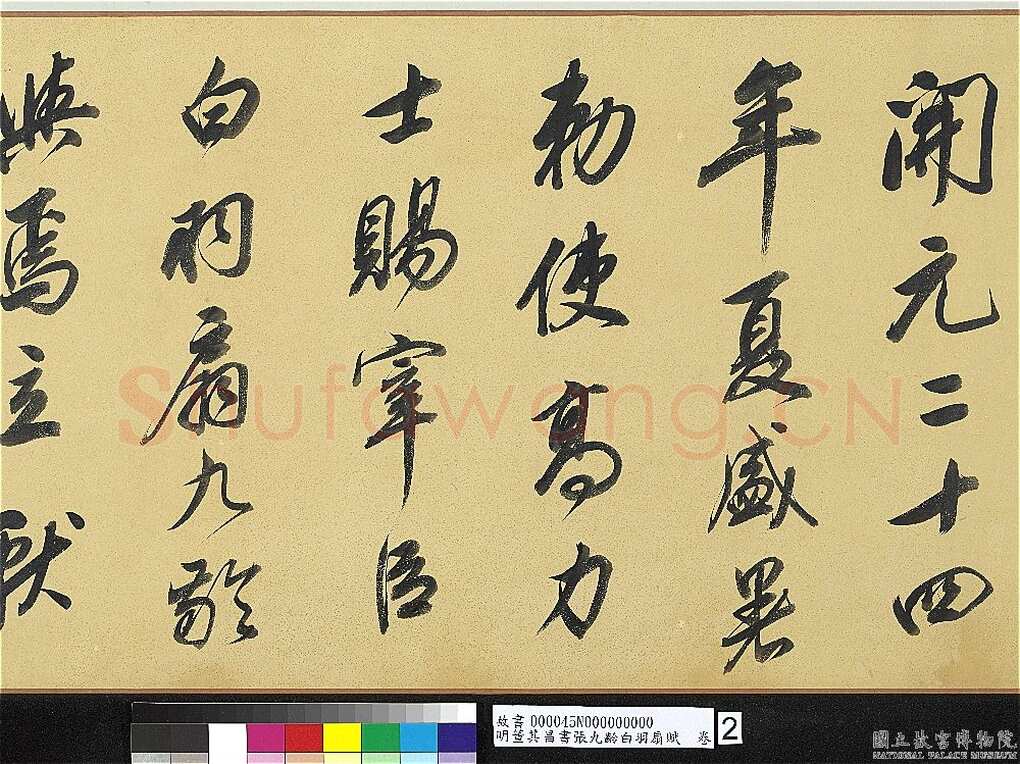 開元二十四
年夏盛暑
勅使高力
士賜宰臣
白羽扇九齡
與焉立獻
Shufawang.CN
故書 000045N000000000
明董其昌書張九齡白羽扇賦 卷
2
國立故宮博物院
NATIONAL PALACE MUSEUM